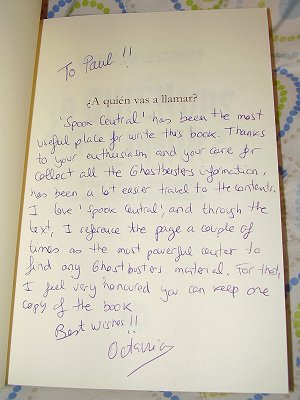 To Paul!!
¿A quién vas a llamar?
'Spook Central' has been the most
useful place for write this book. Thanks
to your enthusiasm and your care for
collect all the Ghostbusters information,
has been a lot easier travel to the
I love 'Spook Central', and through the
text, I reference the page a couple of
times as the most powerful center to
find any Ghostbusters material. For that,
I feel very honoured you can keep one
copy of the book
Best wishes!!
Octavio